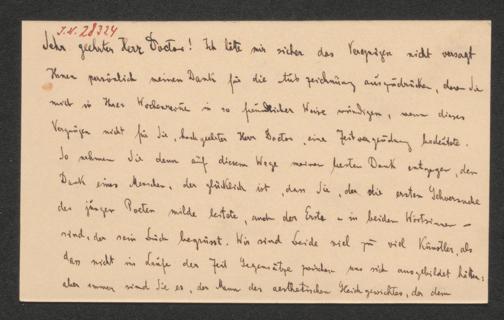 J.N. 28324
Sehr geehrter Herr Doctor! Ich hätte mir sicher das Vergnügen nicht versagt
Ihnen persönlich meinen Dank für die Auszeichnung auszudrücken, deren Sie
mich in Ihrer Wochenrevue in so freundlicher Weise würdigen, wenn dieses
Vergnügen nicht für Sie, hochgeehrter Herr Doctor, eine Zeitvergeudung bedeutete.
So nehmen Sie denn auf diesem Wege meinen besten Dank entgegen, den
Dank eines Menschen, der glücklich ist, dass Sie, der die ersten Gehversuche
des jungen Poeten milde leitete, auch der Erste – in beiden Wortsinnen –
sind, der sein Buch begrüsst. Wir sind beide viel zu viel Künstler, als
dass nicht im Laufe der Zeit Gegensätze zwischen uns sich ausgebildet hätten;
aber immer sind Sie es, der Mann des aesthetischen Gleichgewichtes, der dem